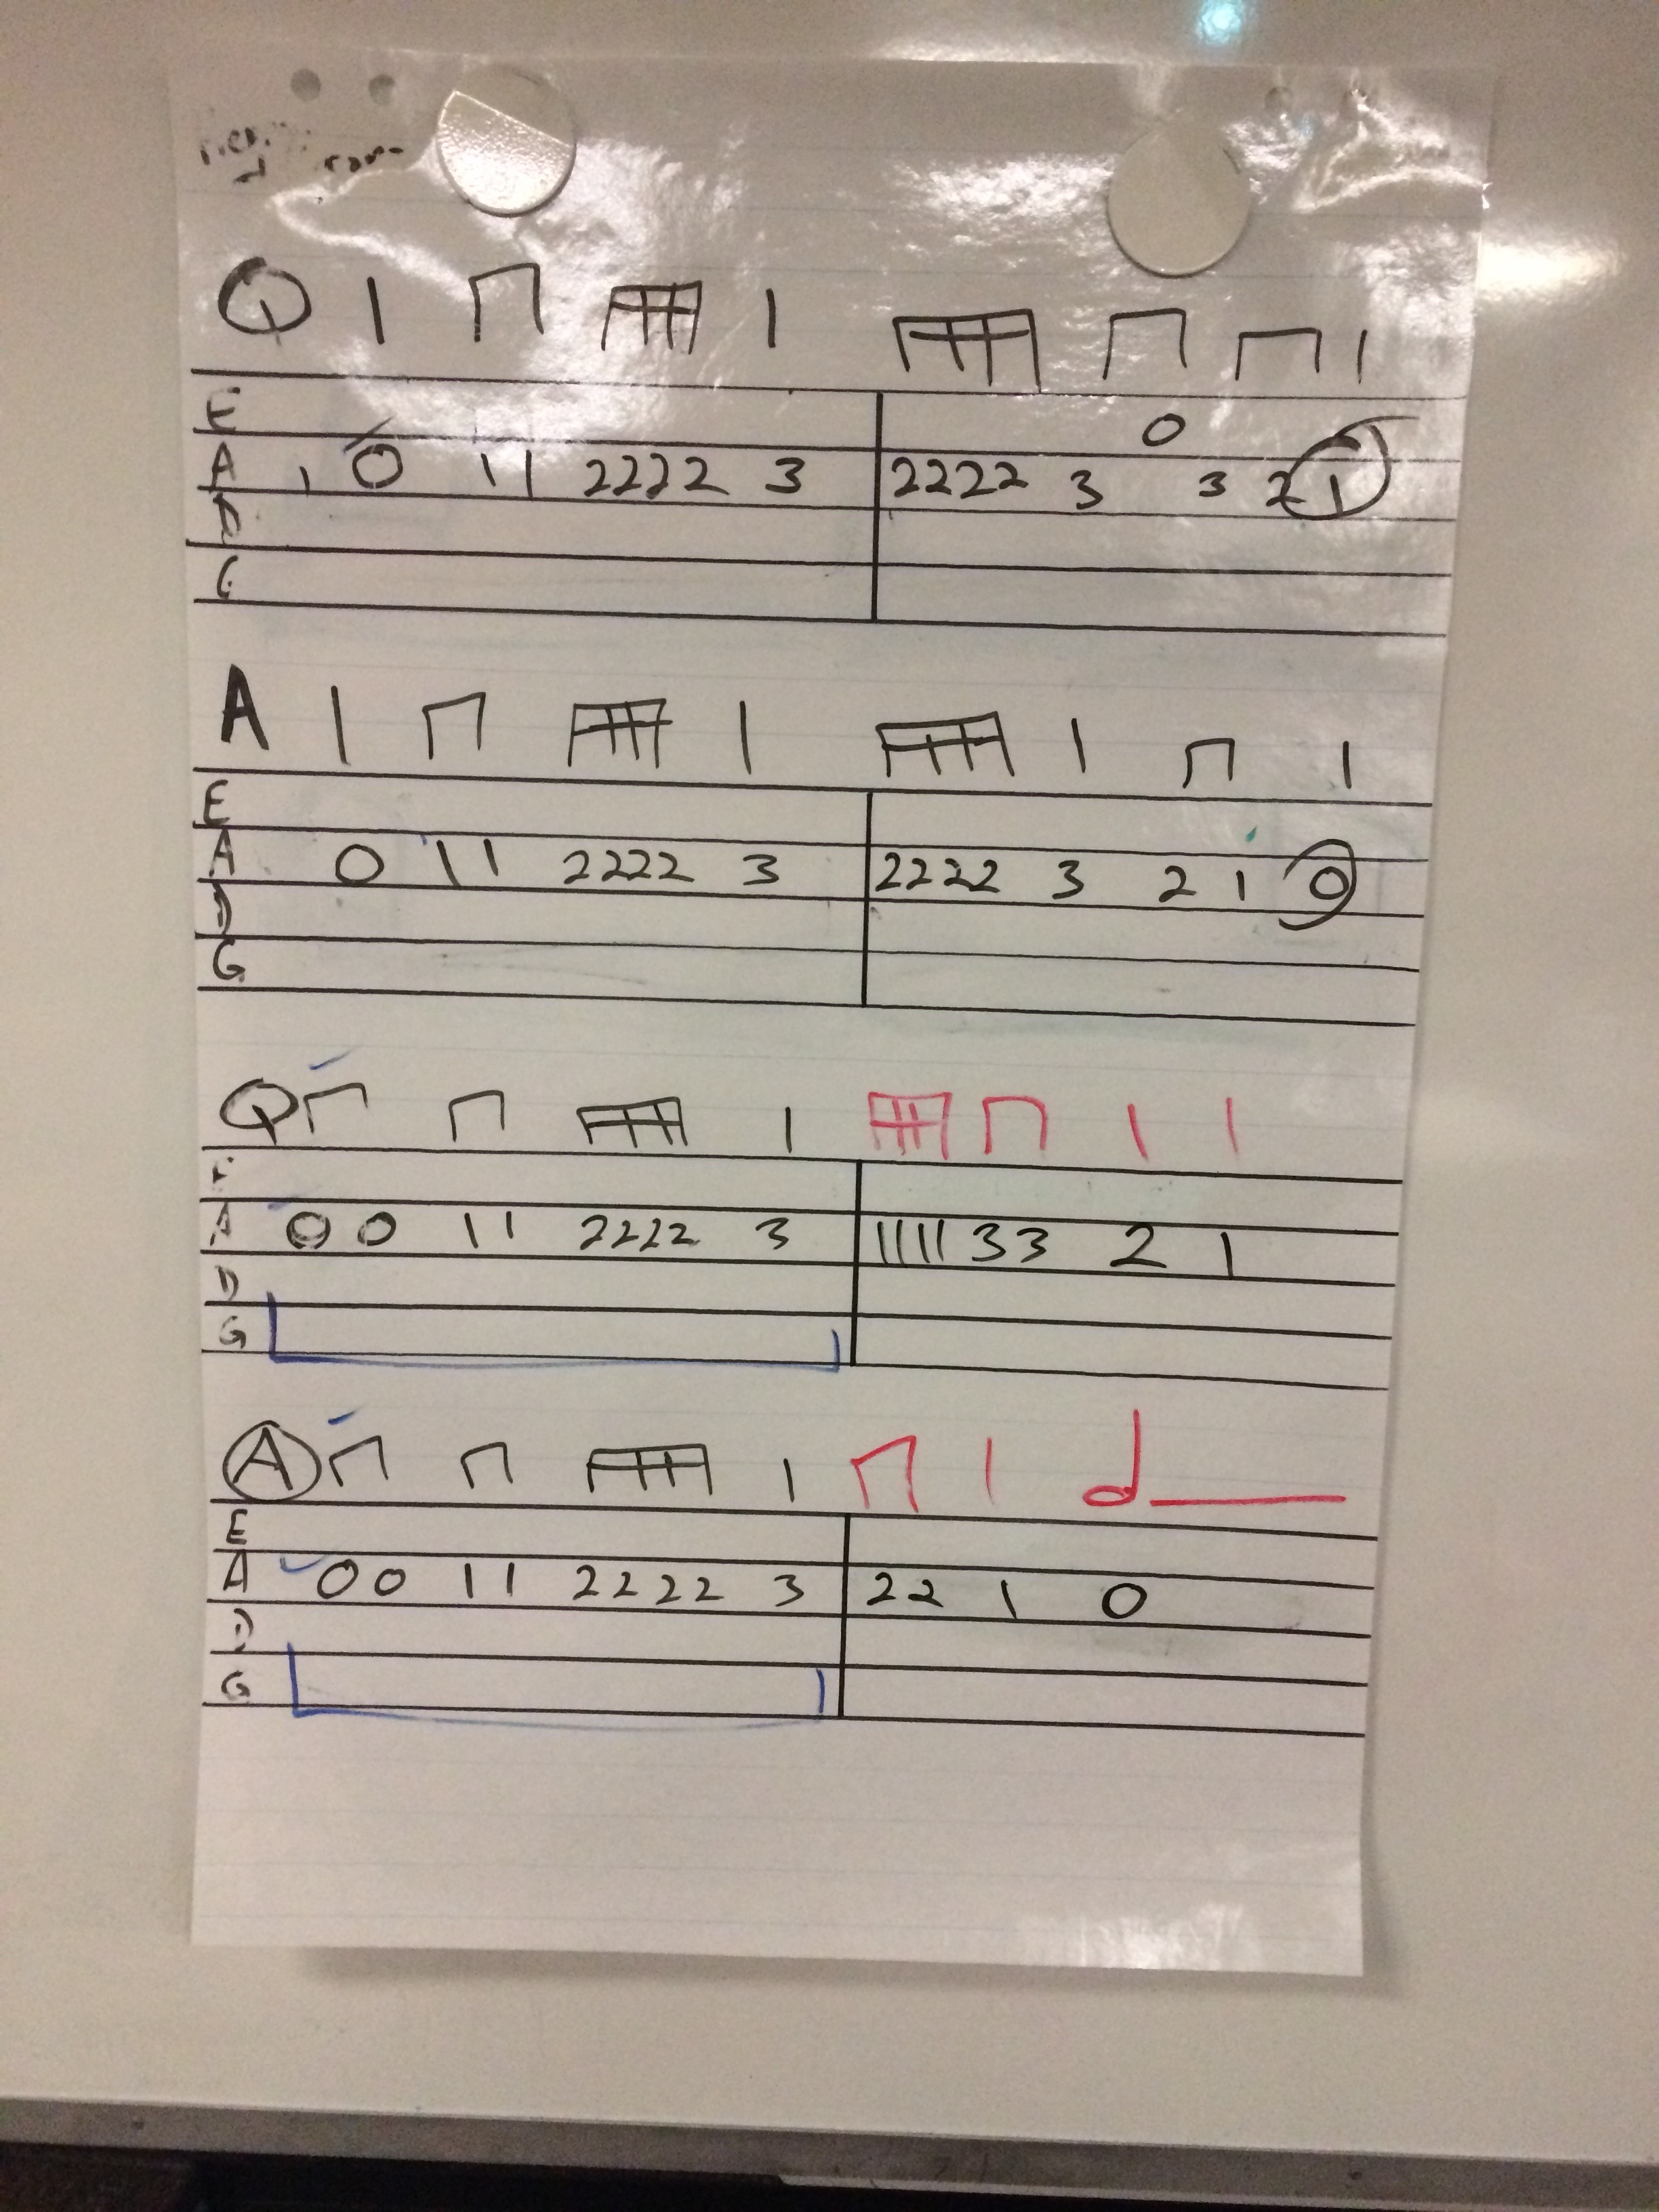 Q
E 0
A 1 0 1 1 2222 3 2222 3 3 2 1
D
G
A
E
A 0 1 1 2222 3 2222 3 2 1 0
D
G
Q
E
A 0 0 1 1 2222 3 1111 33 2 1
D
G
A
E
A 0 0 1 1 2222 3 22 1 0
D
G